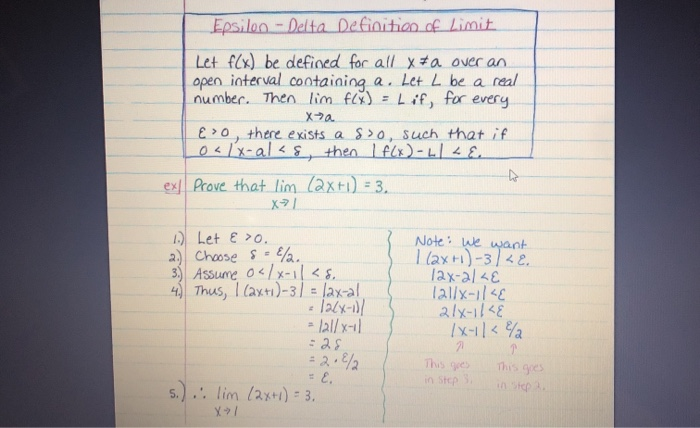 Epsilon-Delta Definition of Limit
Let f(x) be defined for all x≠a over an
open interval containing a. Let L be a real
number. Then lim f(x) = L if, for every
x→a
ε>0, there exists a δ>0, such that if
0<|x-a|<δ, then |f(x)-L|<ε.
ex| Prove that lim (2x+1)=3.
x→1
1.) Let ε>0.
2.) Choose δ=ε/2.
3.) Assume 0<|x-1|<δ.
4.) Thus, |(2x+1)-3| = |2x-2|
= |2(x-1)|
= |2||x-1|
= 2δ
= 2·ε/2
= ε.
5.) ∴ lim (2x+1)=3.
x→1
Note: we want
|(2x+1)-3|<ε.
|2x-2|<ε
|2||x-1|<ε
2|x-1|<ε
|x-1|<ε/2
↑ ↑
This goes This goes
in step 3. in step 2.